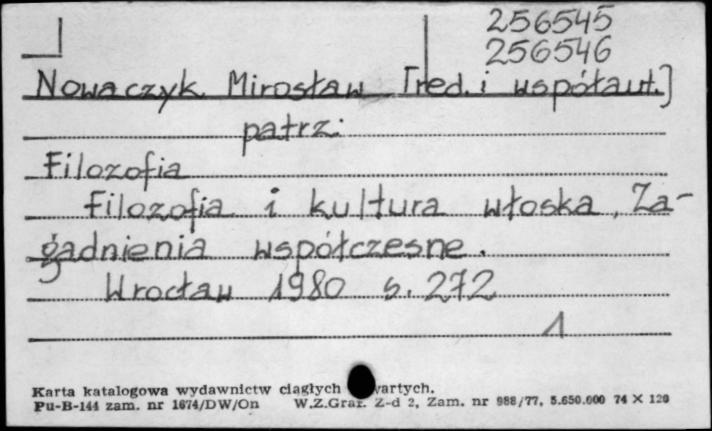 256545
256546
Nowaczyk Mirosław [red. i współaut.]
patrz:
Filozofia
Filozofia i kultura włoska, Za-
gadnienia współczesne.
Wrocław 1980 s. 272
1
Karta katalogowa wydawnictw ciągłych wartych.
Pu-B-144 zam. nr 1674/DW/On W.Z.Graf. Z-d 2, Zam. nr 988/77, 5.650.000 74 X 120